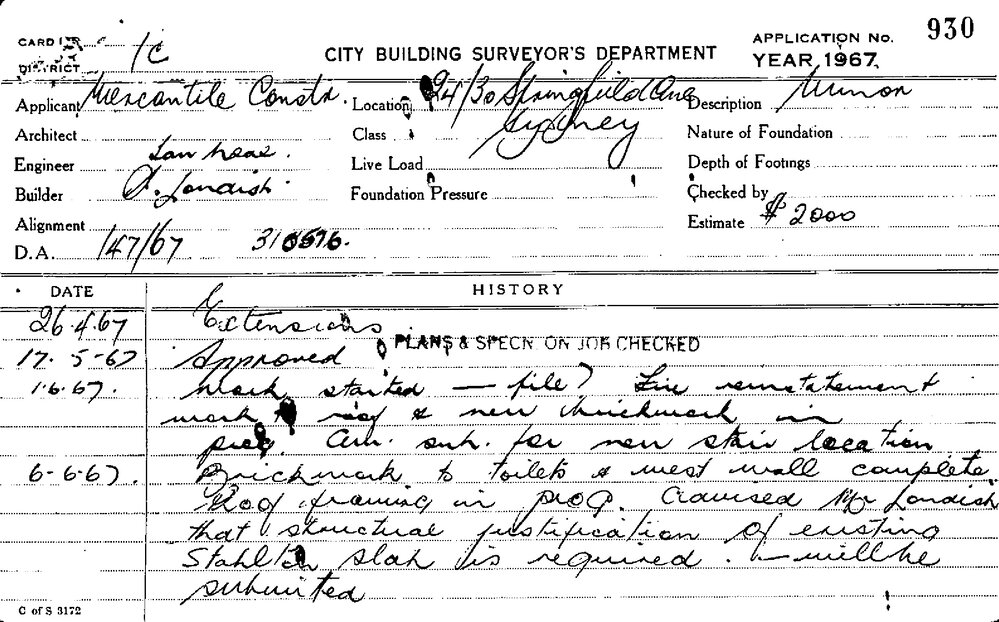 CARD INDEX 1C
DISTRICT
CITY BUILDING SURVEYOR'S DEPARTMENT
APPLICATION No. 930
YEAR 1967
Applicant Mercantile Constr. Location 24/30 Springfield Ave Description Minor
Sydney
Architect Class Nature of Foundation
Engineer Live Load Depth of Footings
Builder A. Londish Foundation Pressure Checked by
Alignment Estimate $2000
D.A. 147/67 310576.
DATE HISTORY
26.4.67 Extensions
17.5-67 Approved PLANS & SPECN ON JOB CHECKED
1.6.67. Work started — file? Fire reinstatement
work to roof & new brickwork in
prog. Am. sub. for new stair location
6-6-67. Brickwork to toilets & west wall complete.
Roof framing in prog. Advised Mr Londish
that structural justification of existing
Stahlton slab is required. — will be
submitted
C of S 3172